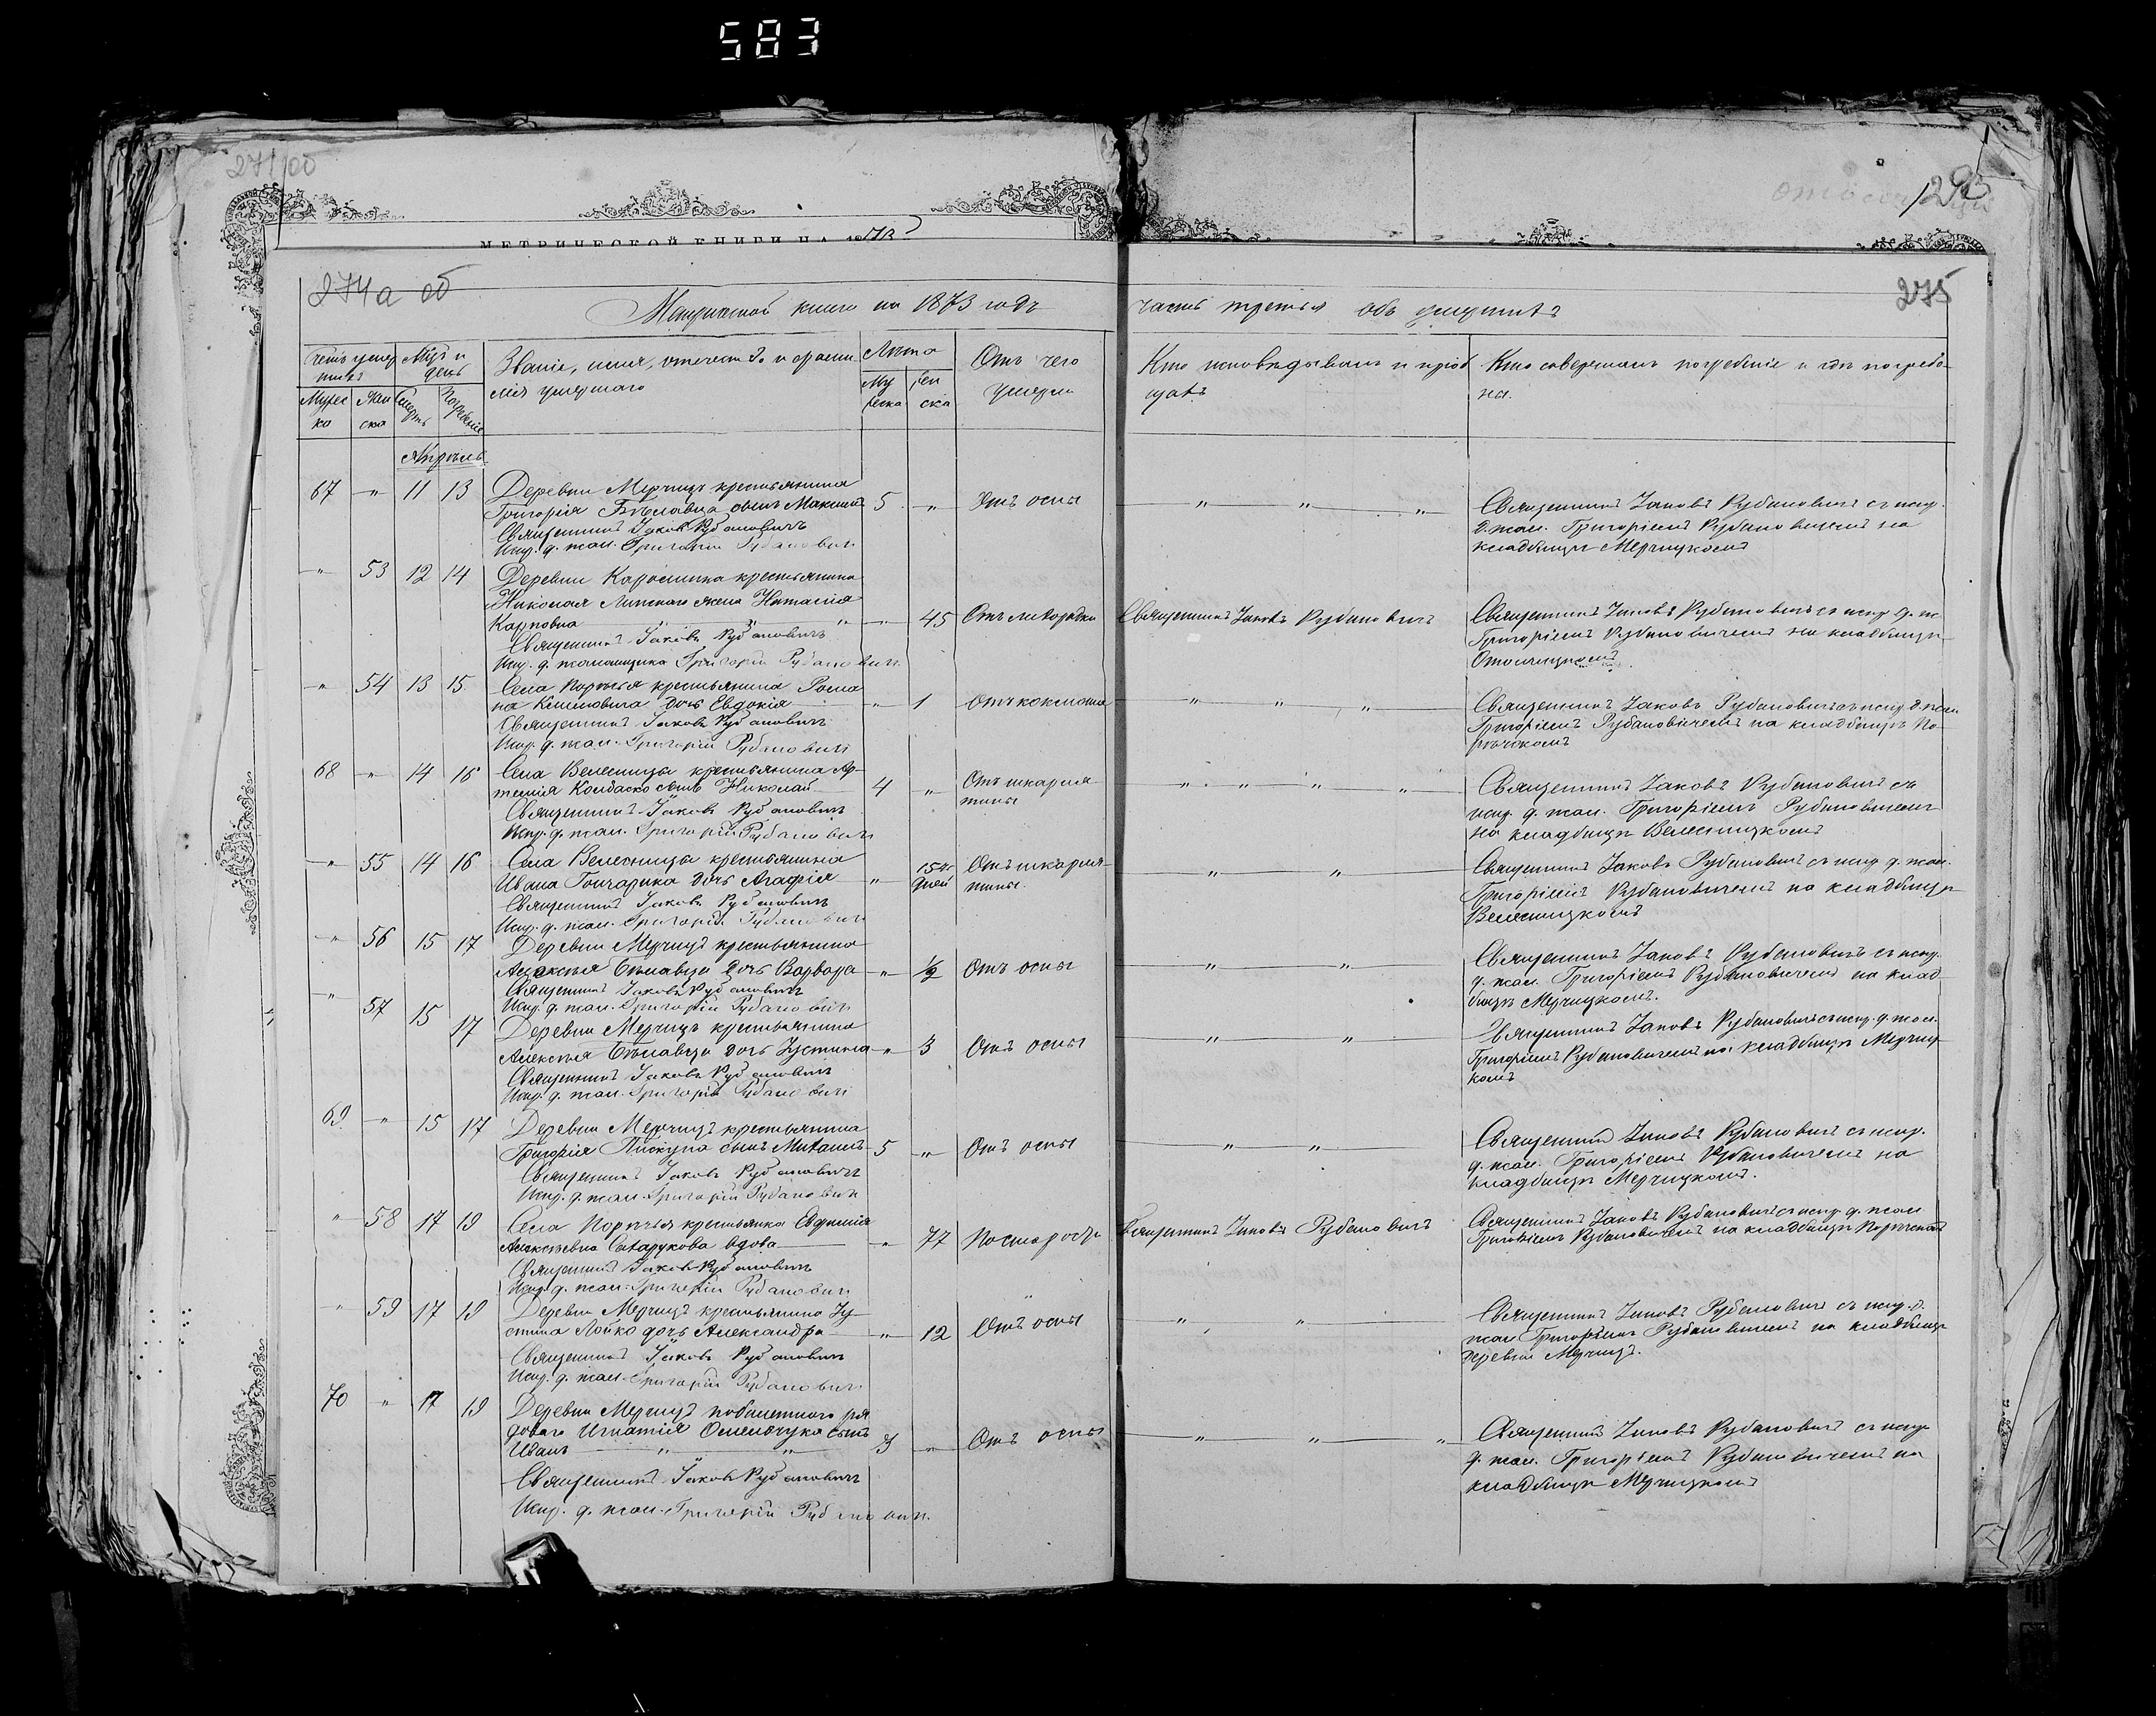 583
271 об
МЕТРИЧЕСКОЙ КНИГИ НА 1873
129
274а об
275
Метрической книги на 1873 годъ часть третья объ умершихъ
Счетъ умершихъ
Мѣс. и день
Званіе, имя, отечество и фамилія умершаго
Лѣта
Отъ чего умерли
Кто исповѣдывалъ и пріобщалъ
Кто совершалъ погребеніе и гдѣ погребены.
Мужеска
Женска
Смерть
Погребеніе
Мужеска
Женска
Апрѣль
67 " 11 13 Деревни Мерчицъ крестьянина
Григорія Бѣлавца сынъ Максимъ 5 " Отъ оспы " " "
Священникъ Іаковъ Рубановичъ
Исп. д. псал. Григорій Рубановичъ
Священникъ Іаковъ Рубановичъ съ испр.
д. псал. Григоріемъ Рубановичемъ на
кладбищѣ Мерчицкомъ
" 53 12 14 Деревни Каролина крестьянина
Николая Липскаго жена Наталія
Карповна " " " 45 Отъ лихорадки Священникъ Іаковъ Рубановичъ
Священникъ Іаковъ Рубановичъ
Исп. д. псаломщика Григорій Рубановичъ
Священникъ Іаковъ Рубановичъ съ испр. д. п.
Григоріемъ Рубановичемъ на кладбищѣ
" 54 13 15 Села Порѣчья крестьянина Рома
на дочь Евдокія " 1 Отъ коклюша " " "
Священникъ Іаковъ Рубановичъ
Исп. д. псал. Григорій Рубановичъ
Священникъ Іаковъ Рубановичъ съ испр. д. псал.
Григоріемъ Рубановичемъ на кладбищѣ По-
рѣчскомъ
68 " 14 16 Села Велесницы крестьянина Ар-
темія Колбаско сынъ Николай 4 " Отъ шкарла-
тины " " " "
Священникъ Іаковъ Рубановичъ
Исп. д. псал. Григорій Рубановичъ
Священникъ Іаковъ Рубановичъ съ
испр. д. псал. Григоріемъ Рубановичемъ
на кладбищѣ Велесницкомъ
" 55 14 16 Села Велесницы крестьянина
Ивана Гончарика дочь Агафія " 15 дней Отъ шкарла-
тины. " "
Священникъ Іаковъ Рубановичъ
Исп. д. псал. Григорій Рубановичъ
Священникъ Іаковъ Рубановичъ съ испр. д. псал.
Григоріемъ Рубановичемъ на кладбищѣ
Велесницкомъ
" 56 15 17 Деревни Мерчицъ крестьянина
Алексѣя Бѣлавца дочь Варвара " 1/2 Отъ оспы " "
Священникъ Іаковъ Рубановичъ
Исп. д. псал. Григорій Рубановичъ
Священникъ Іаковъ Рубановичъ съ испр.
д. псал. Григоріемъ Рубановичемъ на клад-
бищѣ Мерчицкомъ.
" 57 15 17 Деревни Мерчицъ крестьянина
Алексѣя Бѣлавца дочь Іустина " 3 Отъ оспы " "
Священникъ Іаковъ Рубановичъ
Исп. д. псал. Григорій Рубановичъ
Священникъ Іаковъ Рубановичъ съ испр. д. псал.
Григоріемъ Рубановичемъ на кладбищѣ Мерчиц-
комъ
69 " 15 17 Деревни Мерчицъ крестьянина
Григорія Пискуна сынъ Михаилъ 5 " Отъ оспы " "
Священникъ Іаковъ Рубановичъ
Исп. д. псал. Григорій Рубановичъ
Священникъ Іаковъ Рубановичъ съ испр.
д. псал. Григоріемъ Рубановичемъ на
кладбищѣ Мерчицкомъ.
" 58 17 19 Села Порѣчья крестьянка Евфимія
Алексѣевна Сахарукова вдова " 77 По старости Священникъ Іаковъ Рубановичъ
Священникъ Іаковъ Рубановичъ
Исп. д. псал. Григорій Рубановичъ
Священникъ Іаковъ Рубановичъ съ испр. д. псал.
Григоріемъ Рубановичемъ на кладбищѣ Порѣчскомъ
" 59 17 19 Деревни Мерчицъ крестьянина Іу-
стина Лойко дочь Александра " 12 Отъ оспы " "
Священникъ Іаковъ Рубановичъ
Исп. д. псал. Григорій Рубановичъ
Священникъ Іаковъ Рубановичъ съ испр. д.
псал. Григоріемъ Рубановичемъ на кладбищѣ
деревни Мерчицъ.
70 " 17 19 Деревни Мерчицъ побилетнаго ря
доваго Игнатія Омельчука сынъ
Иванъ " " 3 " Отъ оспы " " "
Священникъ Іаковъ Рубановичъ
Исп. д. псал. Григорій Рубановичъ
Священникъ Іаковъ Рубановичъ съ испр.
д. псал. Григоріемъ Рубановичемъ на
кладбищѣ Мерчицкомъ